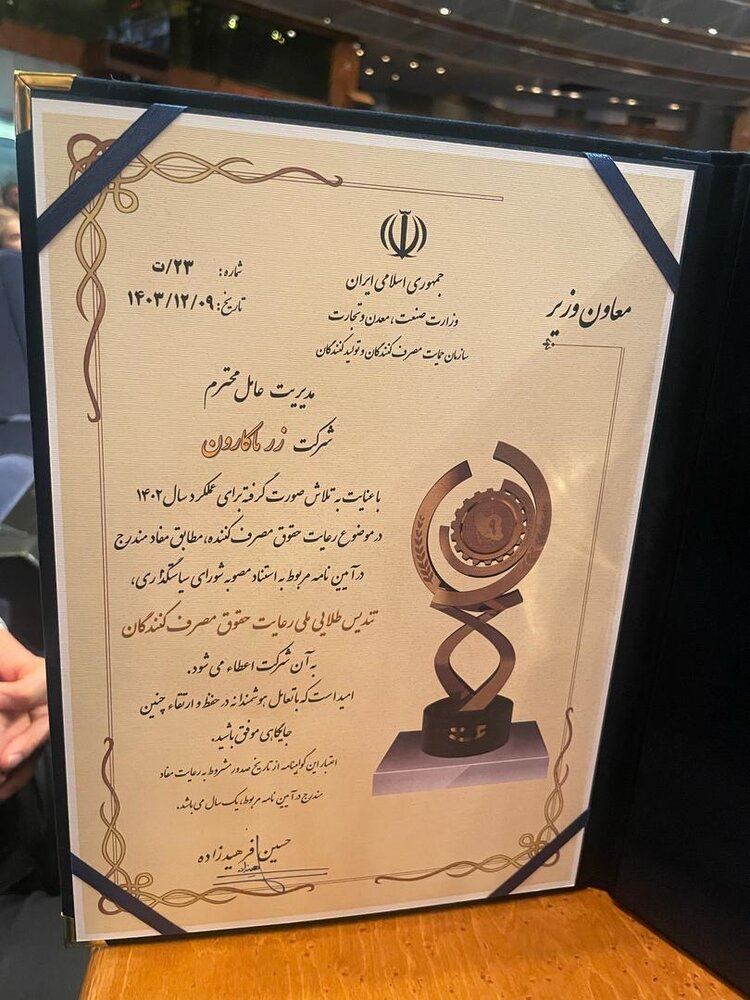 جمهوری اسلامی ایران
وزارت صنعت، معدن و تجارت
سازمان حمایت مصرف کنندگان و تولید کنندگان
معاون وزیر
شماره: ۲۳/ت
تاریخ: ۱۴۰۳/۱۲/۰۹
مدیریت عامل محترم
شرکت زر ماکارون
با عنایت به تلاش صورت گرفته برای عملکرد سال ۱۴۰۲
در موضوع رعایت حقوق مصرف کننده، مطابق مفاد مندرج
در آیین نامه مربوط به استناد مصوبه شورای سیاستگذاری،
تندیس طلایی ملی رعایت حقوق مصرف کنندگان
به آن شرکت اعطاء می شود.
امید است که با تعامل هوشمندانه در حفظ و ارتقاء چنین
جایگاهی موفق باشید.
اعتبار این گواهینامه از تاریخ صدور مشروط به رعایت مفاد
مندرج در آیین نامه مربوط، یک سال می باشد.
حسین فرهیدزاده